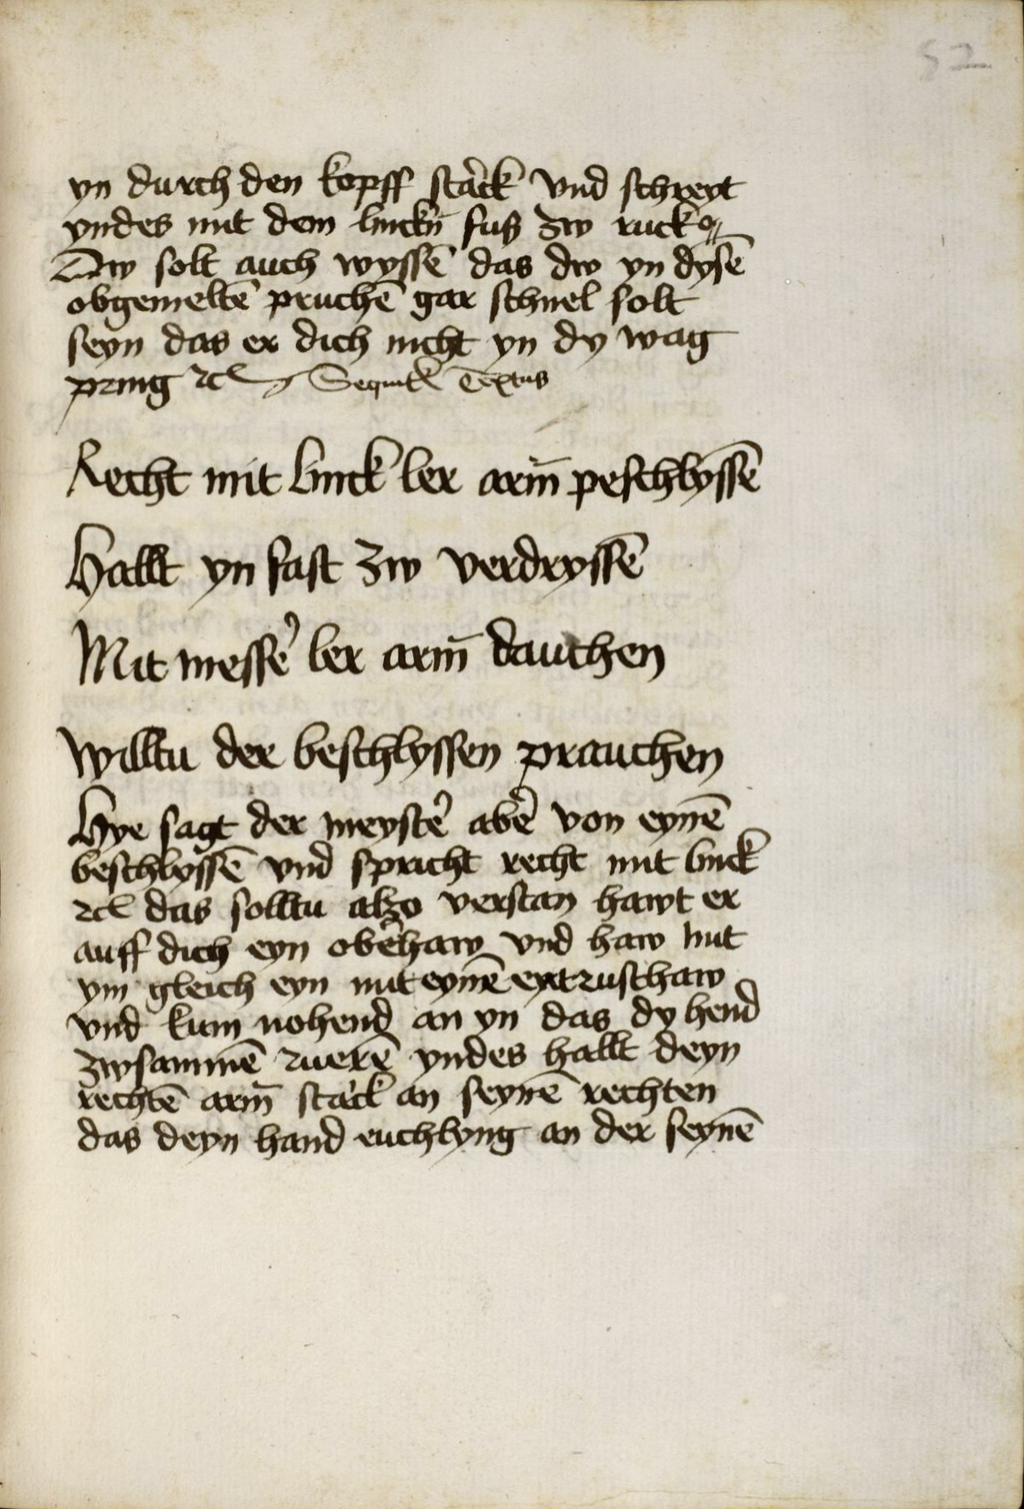 52
yn durch den kopff starck vnd schreyt
yndes mit dem linckn̄ fuß zw ruck
Dw solt auch wyssē das dw yn dysē
obgemeltē pruchē gar schnel solt
seyn das er dich nicht yn dy wag
pring ꝛcͣ Sequitr Textus
Recht mit linck ler arm̄ peschlyssē
Hallt yn fast zw verdryssē
Mit messer̓ ler arm̄ dauchen
Willtu der beschlyssen prauchen
Hye sagt der meyster̓ aber̓ von eynē
beschlyssē vnd spricht recht mit linck
ꝛcͣ das solltu alzo verstan hawt er
auff dich eyn ober̓haw vnd haw mit
ym gleich eyn mit eynē entrusthaw
vnd kum nohend an yn das dy hend
zwsammē ruerē yndes hallt deyn
rechtē arm̄ starck an seynē rechten
das deyn hand euchlyng an der seynē